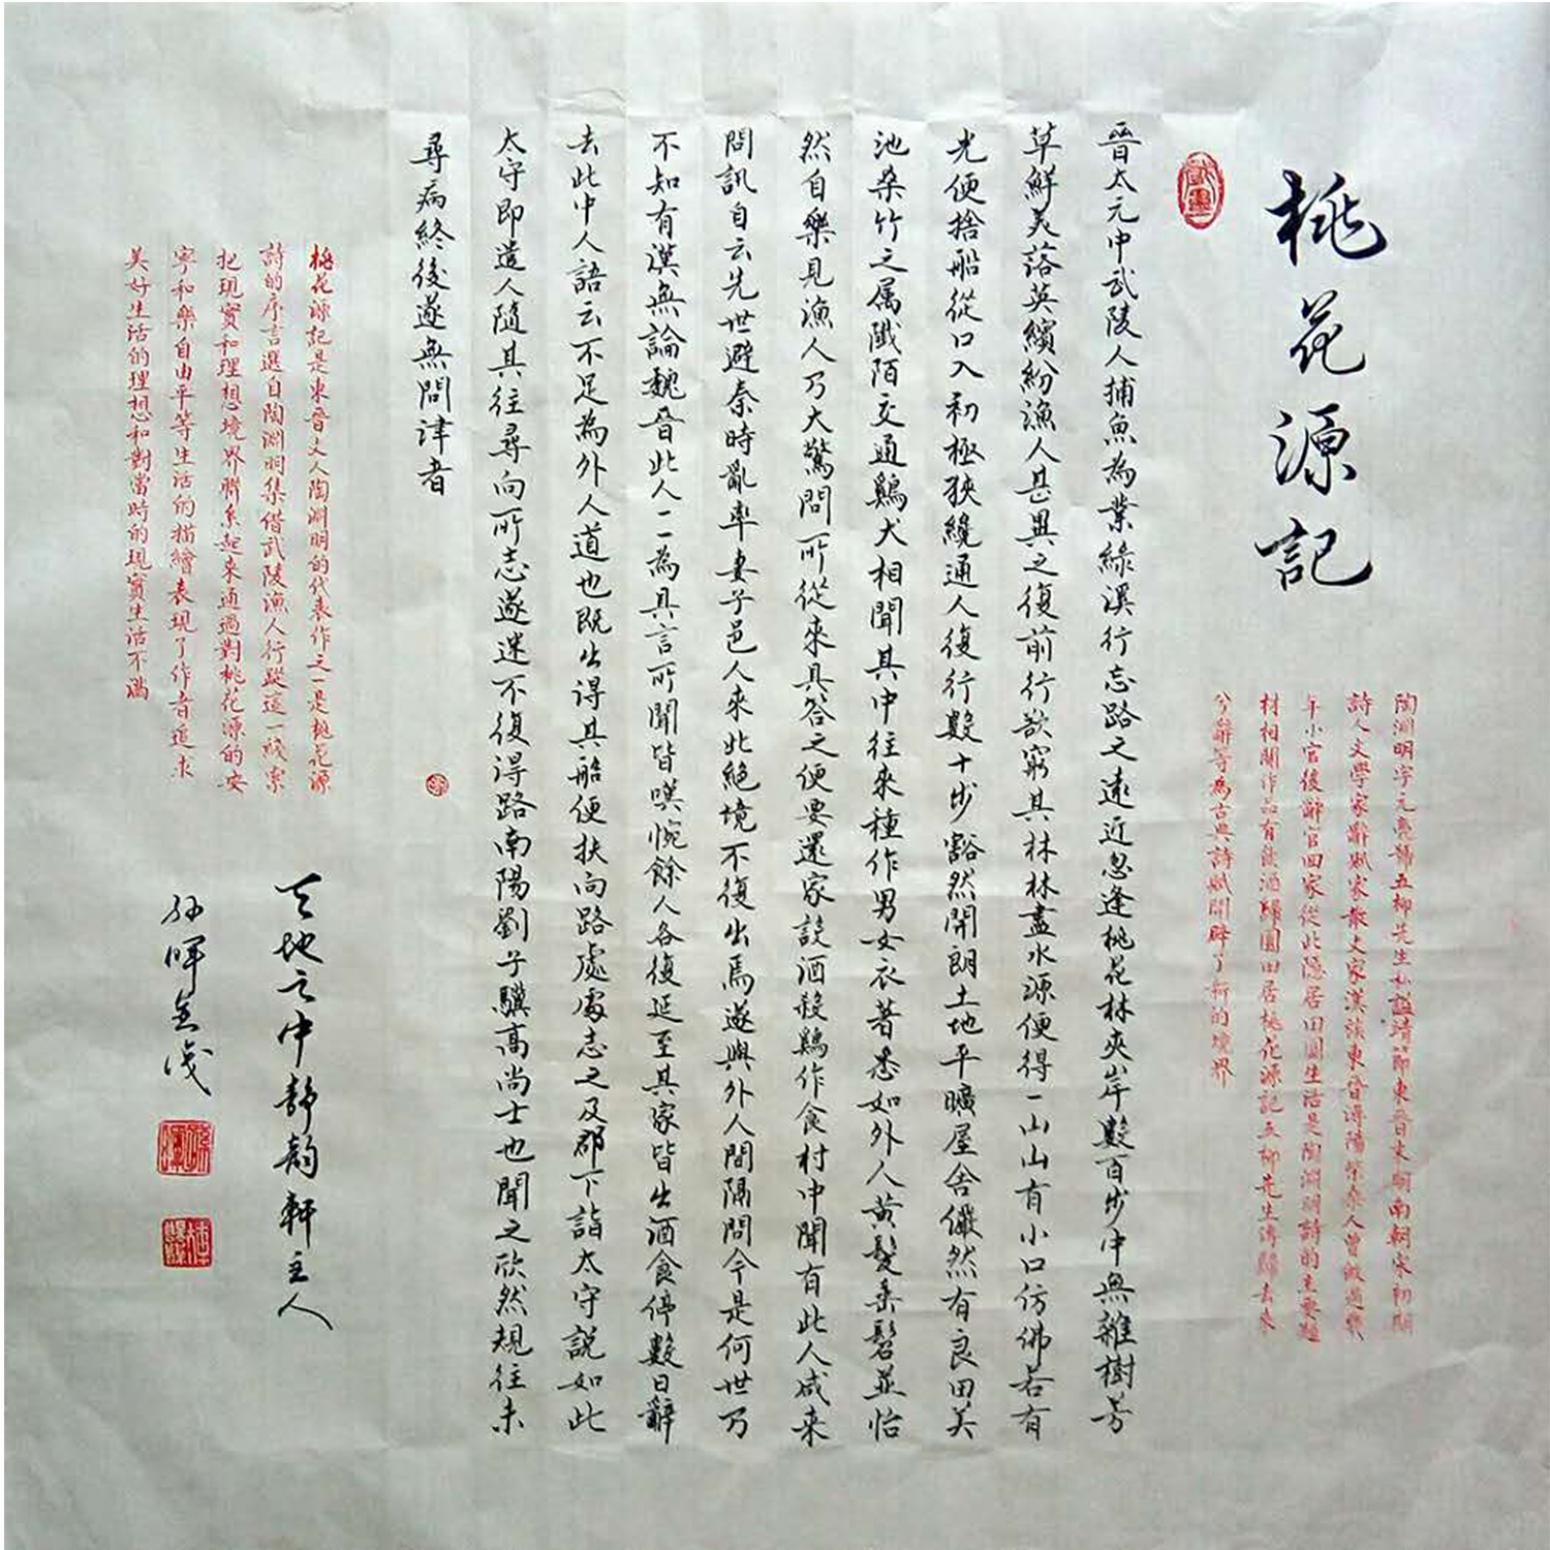 桃花源記
陶淵明字元亮號五柳先生私謚靖節東晉末期南朝宋初期
詩人文學家辭賦家散文家漢族東晉潯陽柴桑人曾做過幾
年小官後辭官回家從此隱居田園生活是陶淵明詩的主要題
材相關作品有飲酒歸園田居桃花源記五柳先生傳歸去來
兮辭等為古典詩賦開辟了新的境界
晉太元中武陵人捕魚為業緣溪行忘路之遠近忽逢桃花林夾岸數百步中無雜樹芳
草鮮美落英繽紛漁人甚異之復前行欲窮其林林盡水源便得一山山有小口仿佛若有
光便捨船從口入初極狹纔通人復行數十步豁然開朗土地平曠屋舍儼然有良田美
池桑竹之属阡陌交通鷄犬相聞其中往来種作男女衣著悉如外人黃髮垂髫並怡
然自樂見漁人乃大驚問所從來具答之便要還家設酒殺鷄作食村中聞有此人咸来
問訊自云先世避秦時亂率妻子邑人來此絕境不復出焉遂與外人間隔問今是何世乃
不知有漢無論魏晉此人一一為具言所聞皆嘆惋餘人各復延至其家皆出酒食停數日辭
去此中人語云不足為外人道也既出得其船便扶向路處處志之及郡下詣太守說如此
太守即遣人隨其往尋向所志遂迷不復得路南陽劉子驥高尚士也聞之欣然規往未
尋病終後遂無問津者
桃花源記是東晉文人陶淵明的代表作之一是桃花源
詩的序言選自陶淵明集借武陵漁人行蹤這一綫索
把現實和理想境界聯系起來通過對桃花源的安
寧和樂自由平等生活的描繪表現了作者追求
美好生活的理想和對當時的現實生活不滿
天地之中靜韵軒主人
孫暉